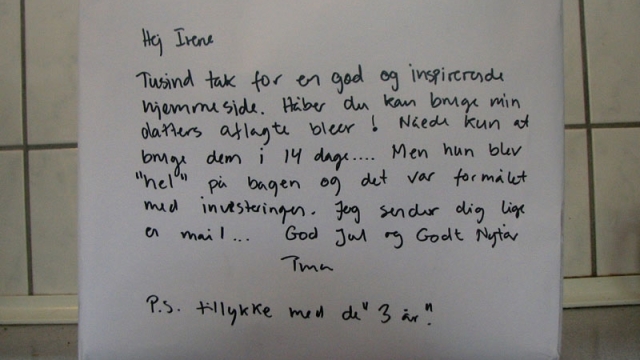 Hej Irene
Tusind tak for en god og inspirerende
hjemmeside. Håber du kan bruge min
datters aflagte bleer! Nåede kun at
bruge dem i 14 dage.... Men hun blev
"hel" på bagen og det var formålet
med investeringen. Jeg sender dig lige
en mail... God Jul og Godt Nytår
P.S. tillykke med de "3 år".